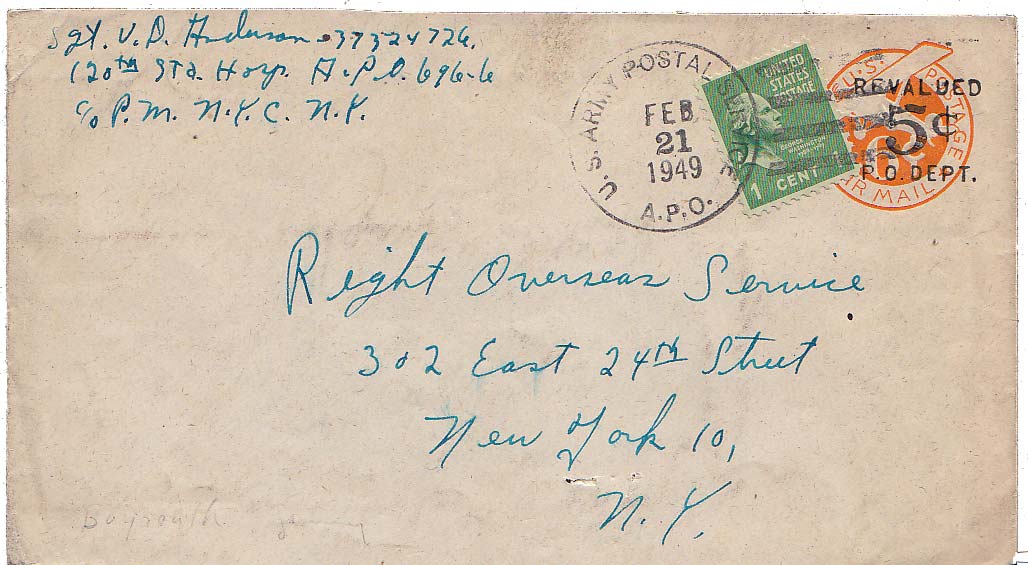 Sgt. V.D. Anderson 37324726.
120th Sta. Hosp. A.P.O. 696-6
c/o P.M. N.Y.C. N.Y.
U.S. ARMY POSTAL SERVICE
FEB
21
1949
A.P.O.
UNITED
STATES
POSTAGE
GEORGE
WASHINGTON
1 CENT
U.S. POSTAGE
REVALUED
5¢
6¢
P.O. DEPT.
AIR MAIL
Right Overseas Service
302 East 24th Street
New York 10,
N.Y.